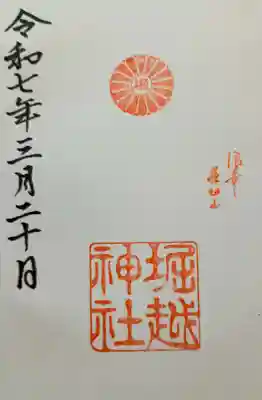 堀越神社
令和七年三月二十日